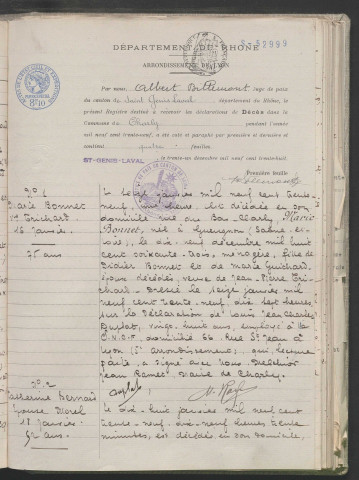 S-92999
DÉPARTEMENT DU RHÔNE
ARRONDISSEMENT DE LYON
Par nous, Albert Billemont, Juge de paix
du canton de Saint Genis Laval, département du Rhône, le
présent Registre destiné à recevoir les déclarations de Décès dans la
Commune de Charly, pendant l'année
mil neuf cent trente-neuf, a été coté et paraphé par première et dernière et
contient feuillets.
ST-GENIS-LAVAL, le trente-un décembre mil neuf cent trente-huit.
Première feuille
N° 1
Marie Bonnet
Vve Guichard
16 Janvier
75 ans
Le seize janvier mil neuf cent trente-
neuf, une heure est décédée en son
domicile rue du Bas Charly, Marie
Bonnet, née à Gueugnon (Saône-et-
Loire), le dix neuf décembre mil huit
cent soixante-trois, ménagère, fille de
Didier Bonnet et de Marie Guichard,
époux décédés, veuve de Jean-Pierre
Dressé le seize janvier mil
neuf cent trente-neuf, dix sept heures
sur la déclaration de Louis Jean Charles
vingt huit ans, employé à la
domicilié 56 Rue St Jean à
Lyon (5e arrondissement), qui lecture
faite, a signé avec Nous Melchior
Jean Maire de Charly.
N° 2
épouse Morel
18 Janvier
52 ans
Le dix-huit janvier mil neuf cent
trente-neuf, dix-neuf heures trente
minutes, est décédée en son domicile,